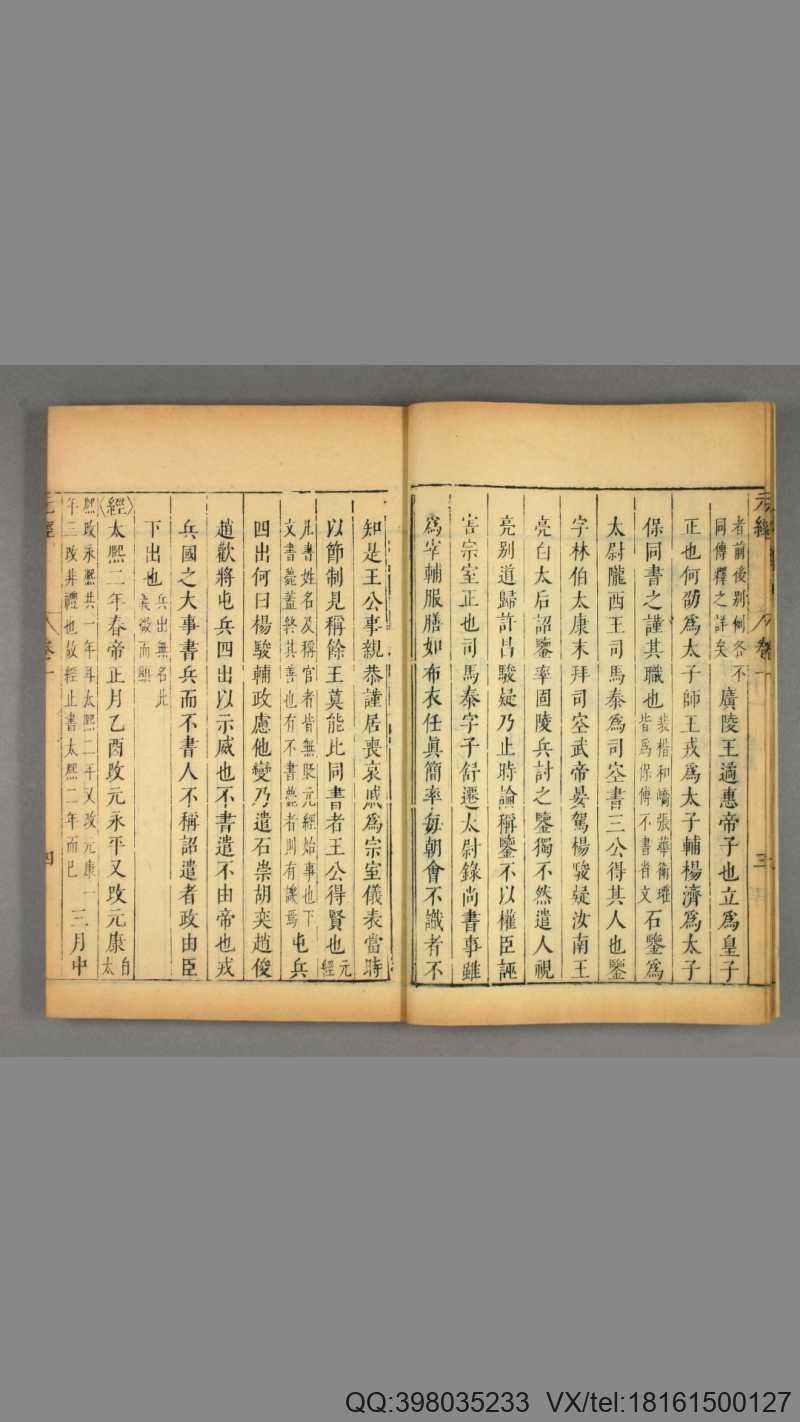 元經 卷一 三
者前後別例各不
同傳釋之詳矣
廣陵王遹惠帝子也立爲皇子
正也何劭爲太子師王戎爲太子輔楊濟爲太子
保同書之謹其職也
裴楷和嶠張華衞瓘
皆爲保傅不書省文
石鑒爲
太尉隴西王司馬泰爲司空書三公得其人也鑒
字林伯太康末拜司空武帝晏駕楊駿疑汝南王
亮白太后詔鑒率固陵兵討之鑒獨不然遣人視
亮别道歸許昌駿疑乃止時論稱鑒不以權臣誣
害宗室正也司馬泰字子舒遷太尉錄尚書事雖
爲宰輔服膳如布衣任眞簡率每朝會不識者不
知是王公事親恭謹居喪哀戚爲宗室儀表當時
以節制見稱餘王莫能此同書者王公得賢也
元
經
凡書姓名及稱官者皆無貶元經始事也下
文書薨蓋終其善也有不書薨者則有譏焉
屯兵
四出何曰楊駿輔政慮他變乃遣石崇胡奕趙俊
趙歡將屯兵四出以示威也不書遣不由帝也戎
兵國之大事書兵而不書人不稱詔遣者政由臣
下出也
兵出無名此
義微而顯
經太熙二年春帝正月乙酉改元永平又改元康
自
太
熙改永熙共一年再太熙二年又改元康一
年三改非禮也故經止書太熙二年而已
三月中
元經 卷一 四
QQ:398035233 VX/tel:18161500127